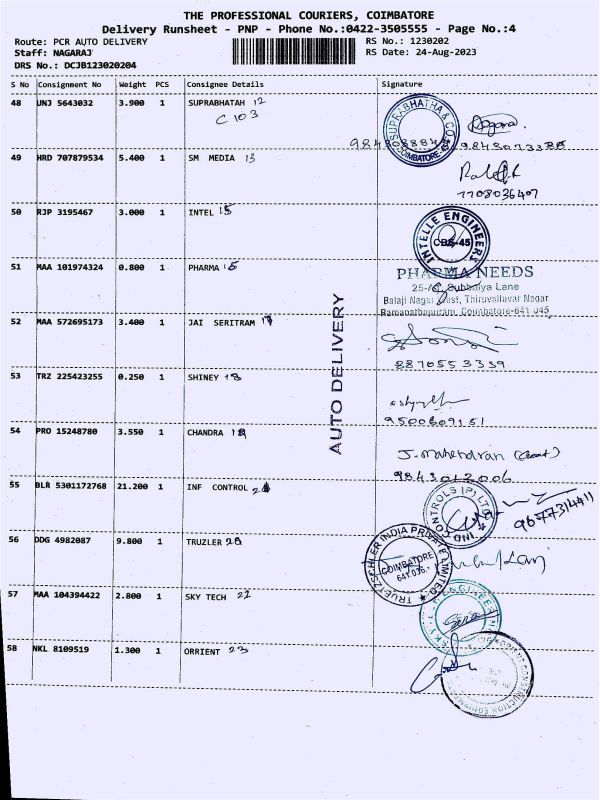 THE PROFESSIONAL COURIERS, COIMBATORE
Delivery Runsheet - PNP - Phone No.:0422-3505555 - Page No.:4
Route: PCR AUTO DELIVERY RS No.: 1230202
Staff: NAGARAJ RS Date: 24-Aug-2023
DRS No.: DCJB123020204
S No Consignment No Weight PCS Consignee Details Signature
48 UNJ 5643032 3.900 1 SUPRABHATAH 12
C 103
SUPRABHATHA & CO. COIMBATORE
49 HRD 707879534 5.400 1 SM MEDIA 13
7708036407
50 RJP 3195467 3.000 1 INTEL 15
INTELLE ENGINEERS CBE-45
51 MAA 101974324 0.800 1 PHARMA 15
PHARMA NEEDS
Subbaiya Lane
Balaji Nagar East, Thiruvalluvar Nagar
Ramanathapuram, Coimbatore-641 045
52 MAA 572695173 3.400 1 JAI SERITRAM 17
8870553339
53 TRZ 225423255 0.250 1 SHINEY 18
9500609151
AUTO DELIVERY
54 PRO 15248780 3.550 1 CHANDRA 19
J. Mahendran
9843012006
55 BLR 5301172768 21.200 1 INF CONTROL
CONTROLS (P) LTD IND
9677314411
56 DDG 4982087 9.800 1 TRUZLER
TRUETZSCHLER INDIA PRIVATE LIMITED
COIMBATORE
57 MAA 104394422 2.800 1 SKY TECH 22
58 NKL 8109519 1.300 1 ORRIENT 23
CONSTRUCTION EQUIPMENT